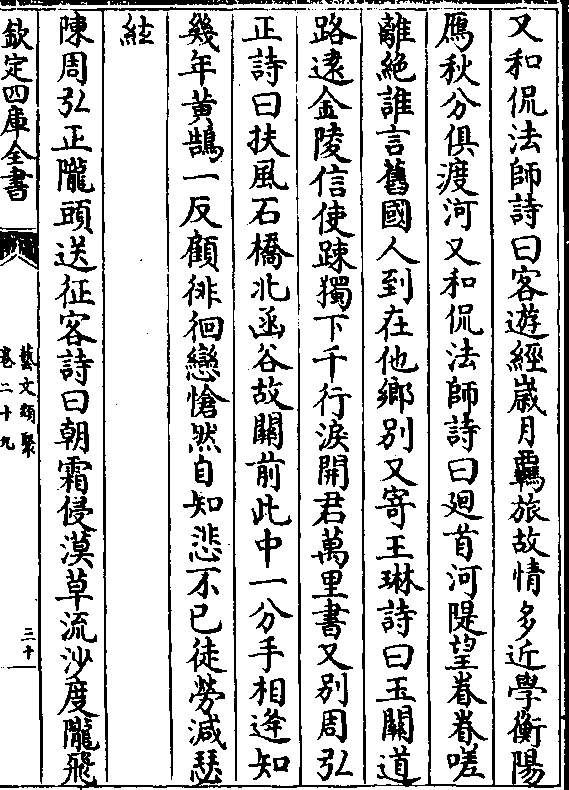 又和侃法師詩曰客遊經歳月羈旅故情多近學衡陽
鴈秋分俱渡河又和侃法師詩曰廻首河隄望眷眷嗟
離絶誰言舊國人到在他鄉别又寄王琳詩曰玉關道
路逺金陵信使踈獨下千行淚開君萬里書又别周弘
正詩曰扶風石橋北函谷故關前此中一分手相逢知
幾年黄鵠一反顧徘徊戀愴然自知悲不已徒勞減瑟
絃
陳周弘正隴頭送征客詩曰朝霜侵漠草流沙度隴飛
欽定四庫全書
藝文類聚
卷二十九
三十